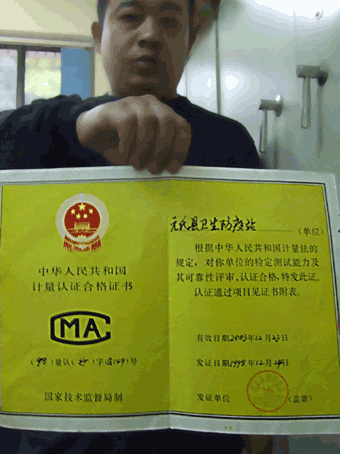 中华人民共和国
计量认证合格证书
CMA
(98)量认( )字(Q149)号
国家技术监督局制
元氏县卫生防疫站(单位)
根据中华人民共和国计量法的
规定,对你单位的检定测试能力及
其可靠性评审、认证合格,特发此证。
认证通过项目见证书附表。
有效日期2003年12月23日
发证日期1998年12月24日
发证单位(盖章)